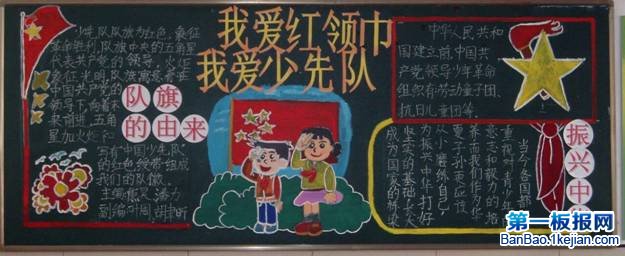 我爱红领巾
我爱少先队
少先队队旗为红色，象征
革命胜利，队旗中央的五角星
代表共产党的领导，火炬
象征光明，队旗寓意着在
中国共产党的
领导下，向着未
来前进，五角
星加火炬和
写有"中国少先队"
的红色绶带组成
我们的队徽。
队旗
的由来
中华人民共和
国建立前，中国共
产党领导少年革命
组织有劳动童子团、
抗日儿童团等。
振兴中华
当今各国都
重视对青少年
意志和毅力的培
养，而我们作为华
夏子孙更应该
从小磨练自己，
为振兴中华打好
坚实的基础，长大
成为国家的栋梁
第一板报网
BanBao.1kejian.com